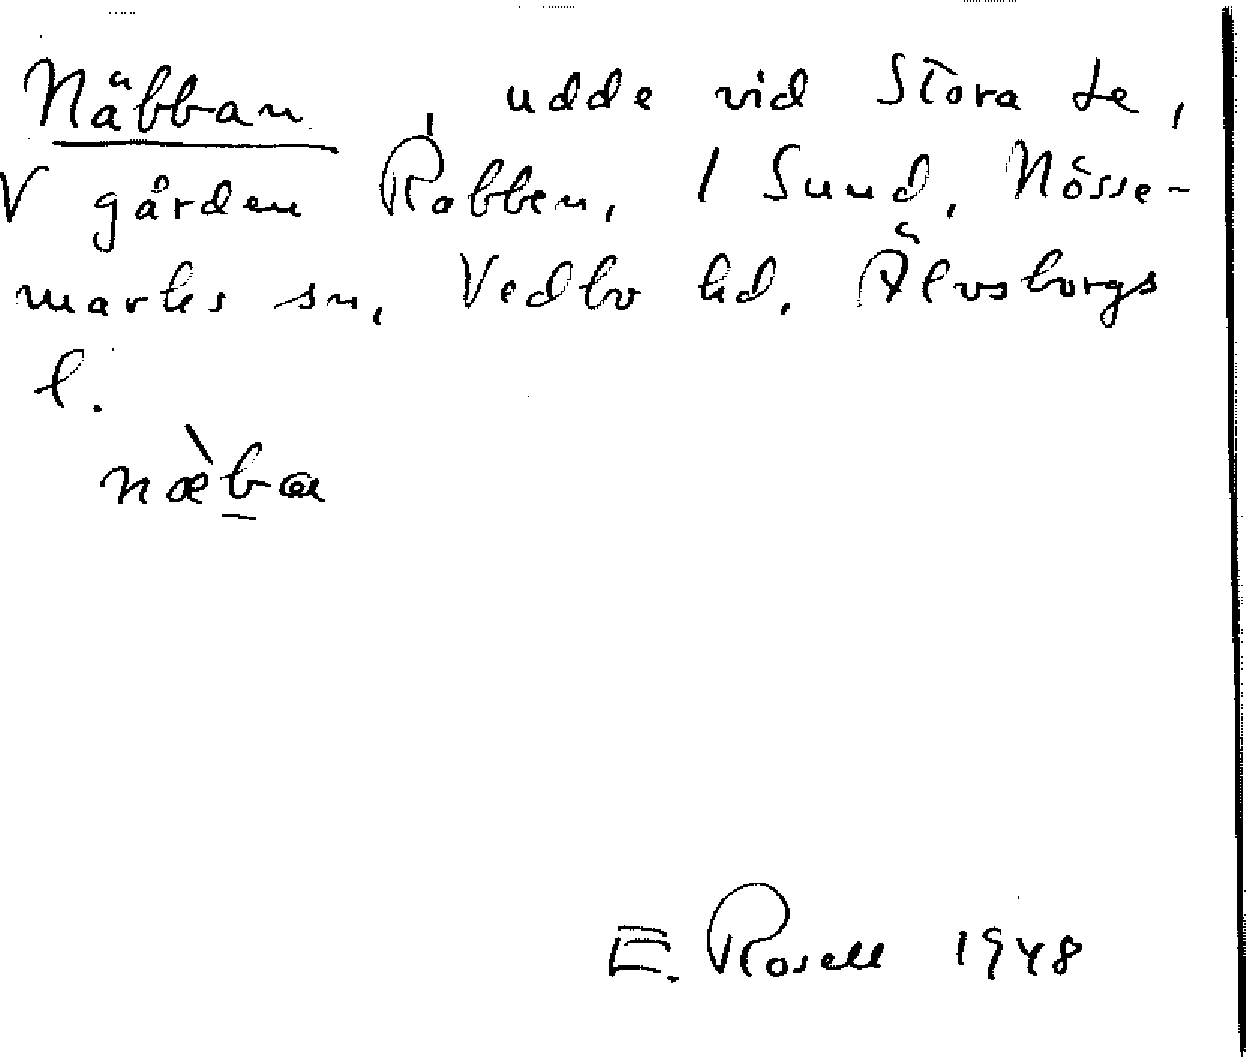 Näbban, udde vid Stora Le,
V gården Rabben, 1 Sund, Nösse-
marks sn, Vedbo hd, Älvsborgs
l.
næ̀b̲a
E. Rosell 1948